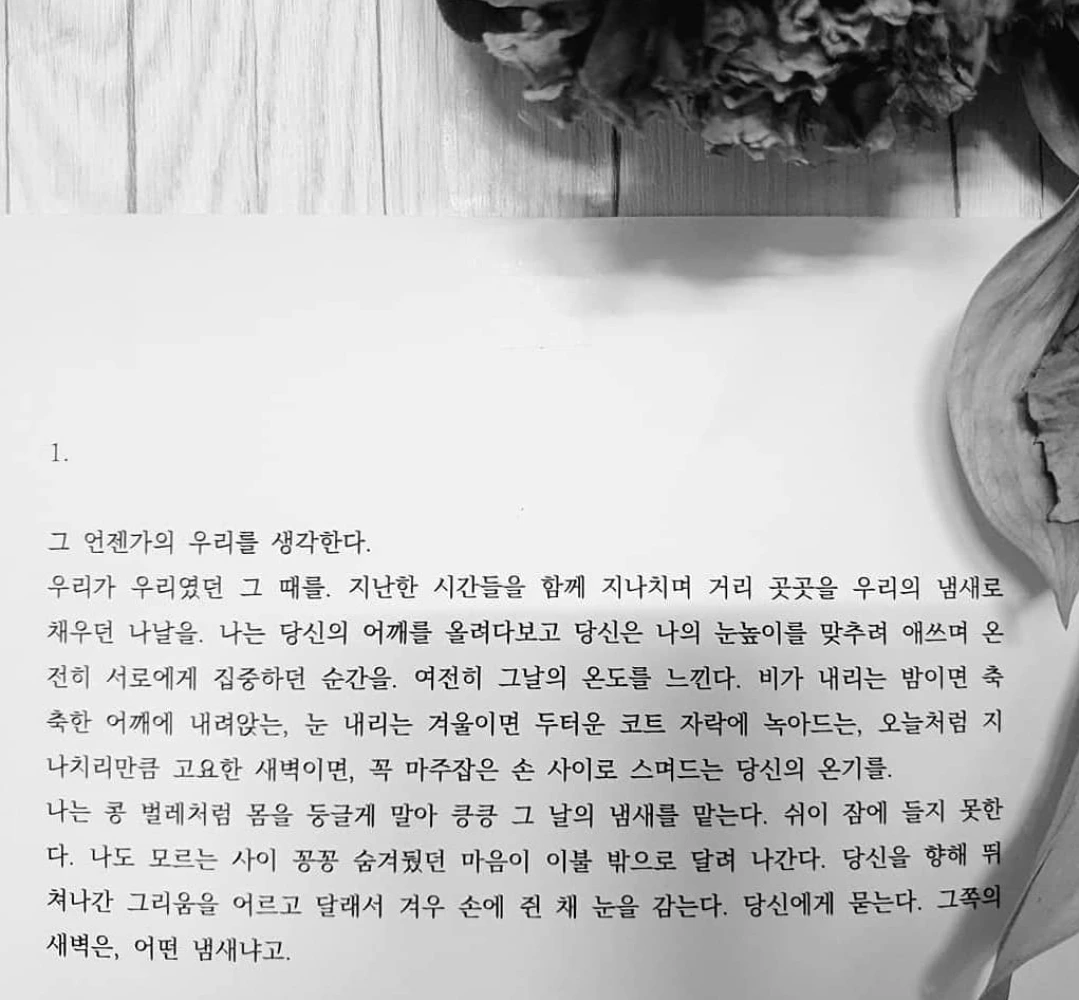 1.
그 언젠가의 우리를 생각한다.
우리가 우리였던 그 때를. 지난한 시간들을 함께 지나치며 거리 곳곳을 우리의 냄새로
채우던 나날을. 나는 당신의 어깨를 올려다보고 당신은 나의 눈높이를 맞추려 애쓰며 온
전히 서로에게 집중하던 순간을. 여전히 그날의 온도를 느낀다. 비가 내리는 밤이면 축
축한 어깨에 내려앉는, 눈 내리는 겨울이면 두터운 코트 자락에 녹아드는, 오늘처럼 지
나치리만큼 고요한 새벽이면, 꼭 마주잡은 손 사이로 스며드는 당신의 온기를.
나는 콩 벌레처럼 몸을 둥글게 말아 킁킁 그 날의 냄새를 맡는다. 쉬이 잠에 들지 못한
다. 나도 모르는 사이 꽁꽁 숨겨뒀던 마음이 이불 밖으로 달려 나간다. 당신을 향해 뛰
쳐나간 그리움을 어르고 달래서 겨우 손에 쥔 채 눈을 감는다. 당신에게 묻는다. 그쪽의
새벽은, 어떤 냄새냐고.